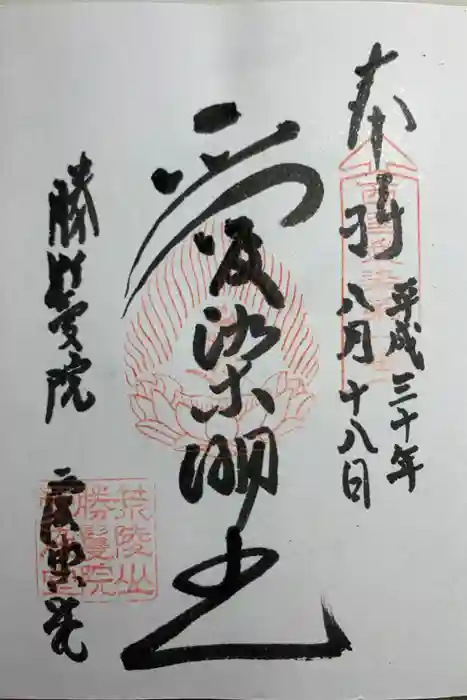 奉拝
平成三十年
八月十八日
愛染明王
勝鬘院
愛染堂
荒陵山
勝鬘院
愛染堂